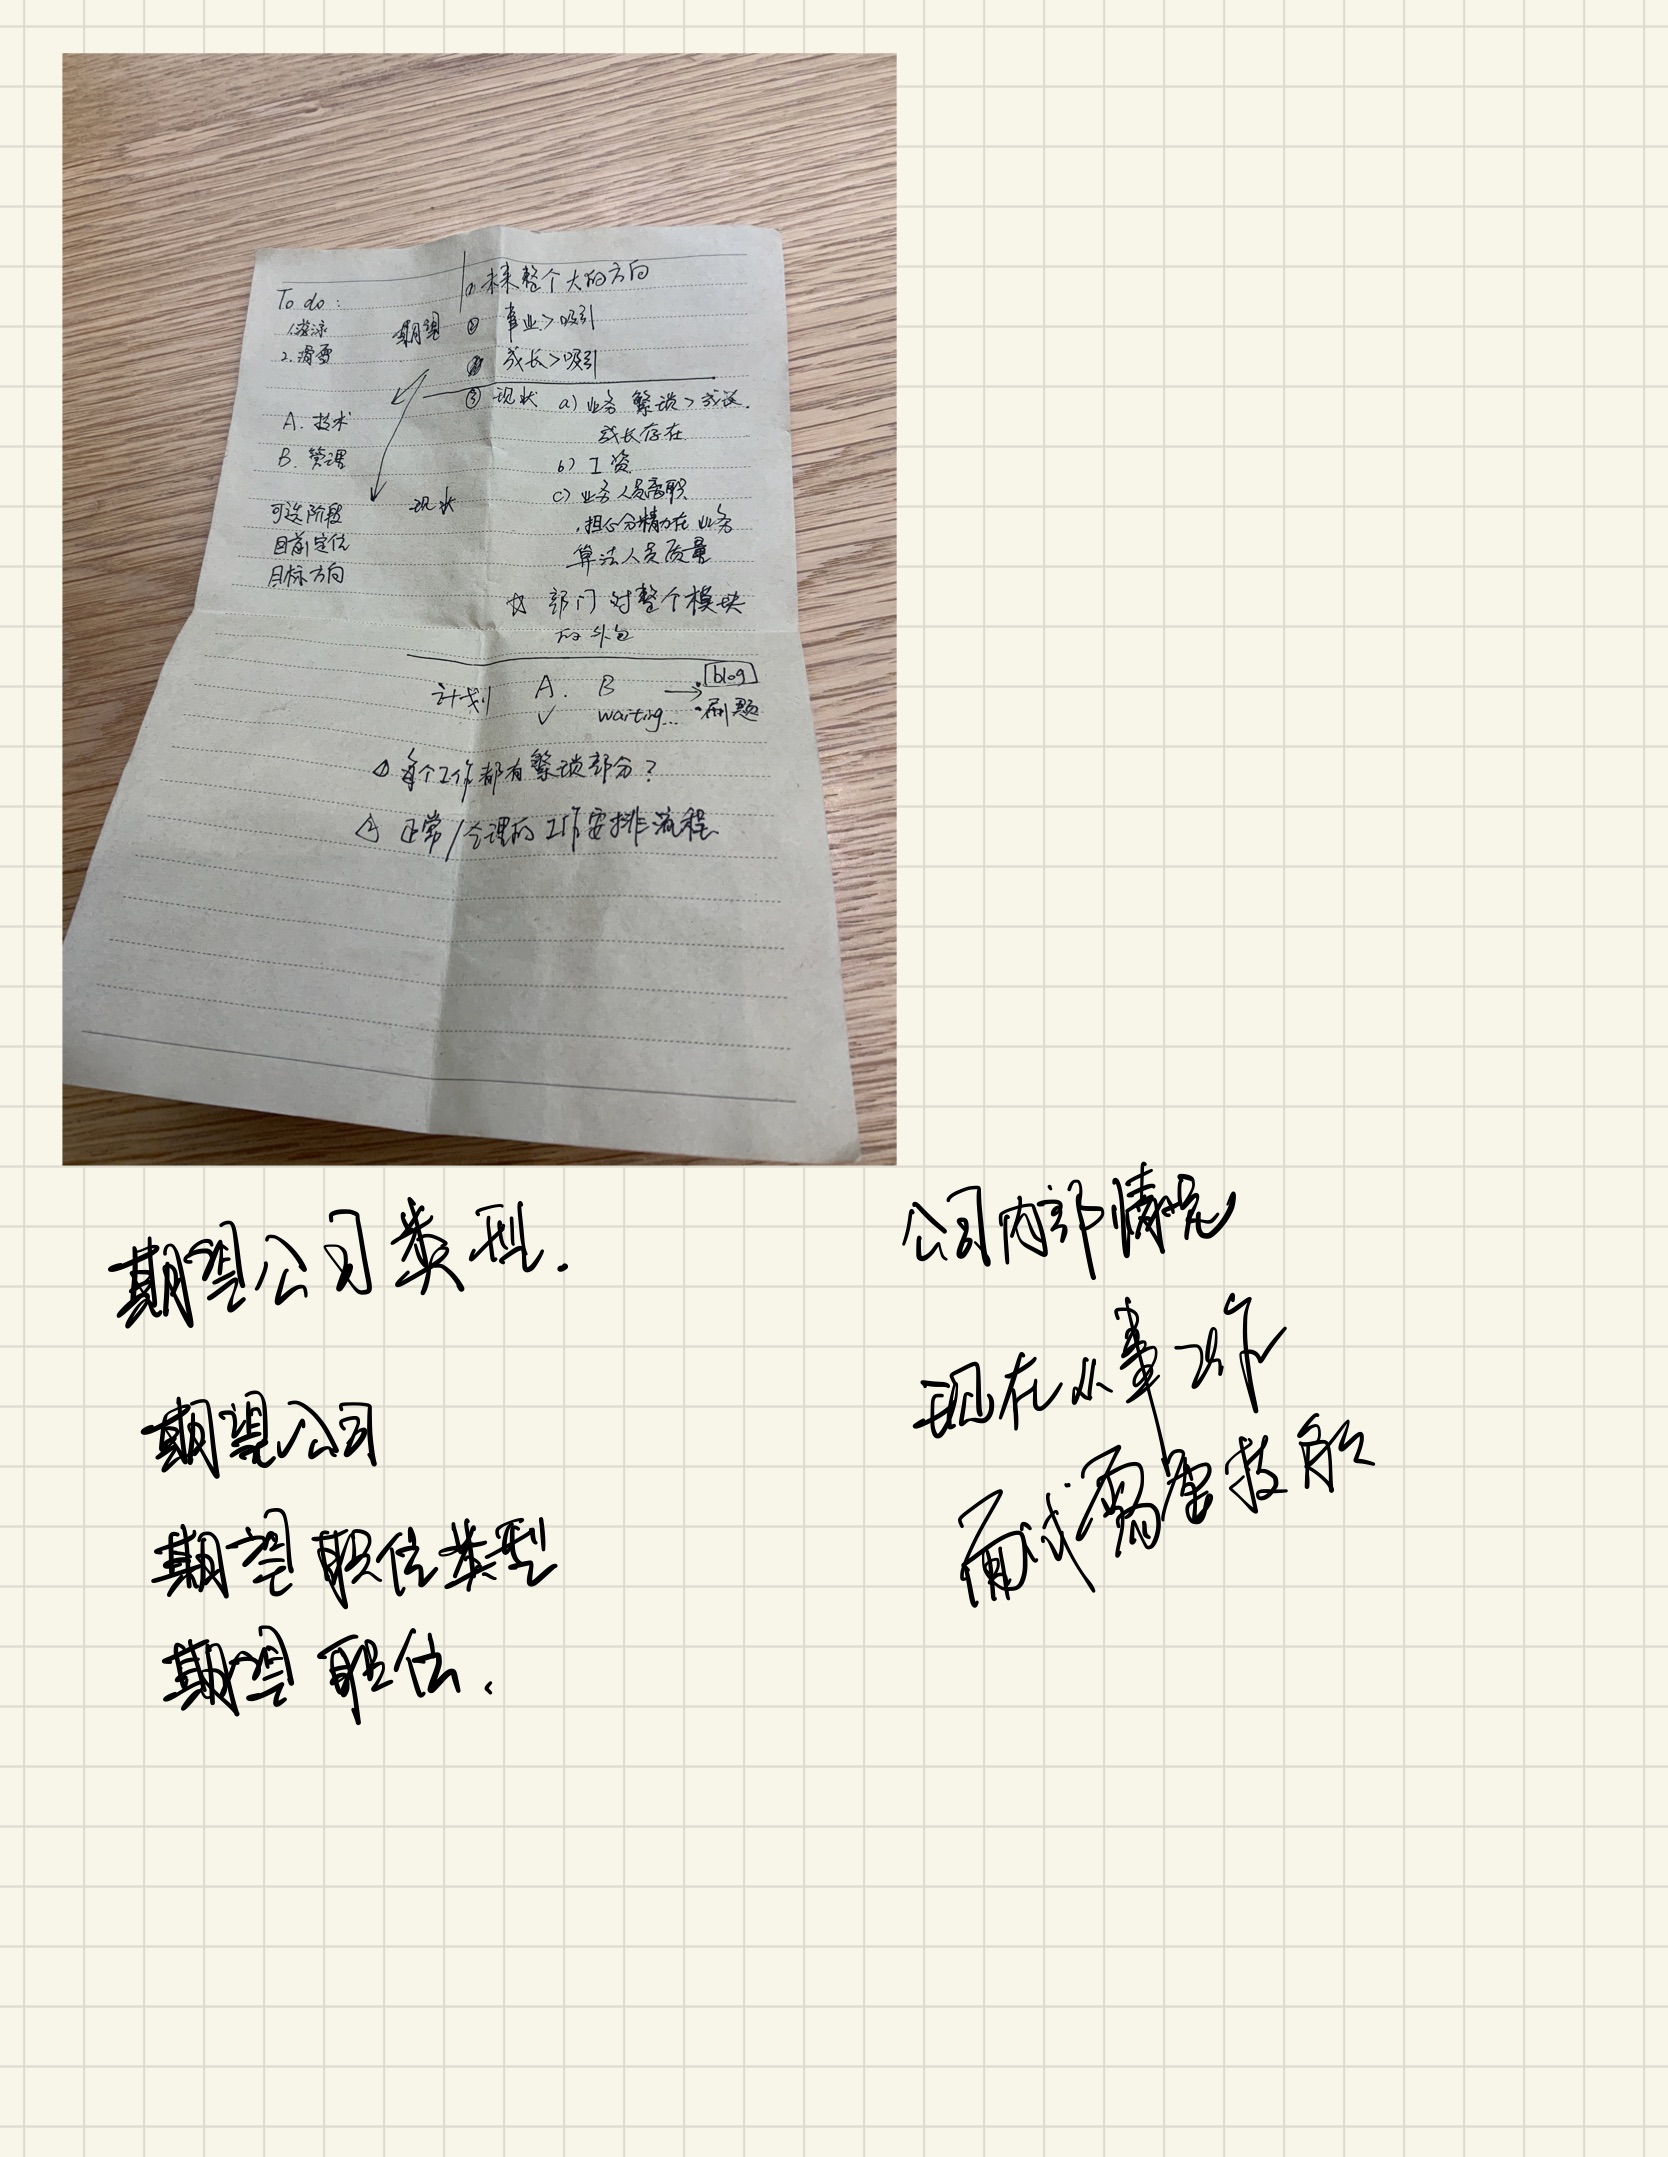 To do:
1.游泳
2.滑雪
A. 技术
B. 管理
可选阶段
目前定位
目标方向
期望
① 未来整个大的方向
② 事业>吸引
成长>吸引
现状
③ 现状 a) 业务 繁琐>
成长存在
b) 工资
c) 业务人员离职
担心分精力在 业务
算法人员质量
☆ 部门 对整个模块
的 外包
计划 A. B → ·blog
✓ waiting... ·刷题
① 每个工作都有繁琐部分?
② 正常/合理的 工作安排流程
期望公司类型.
期望公司
期望职位类型
期望 职位.
公司内部情况
现在从事工作
面试需要技能